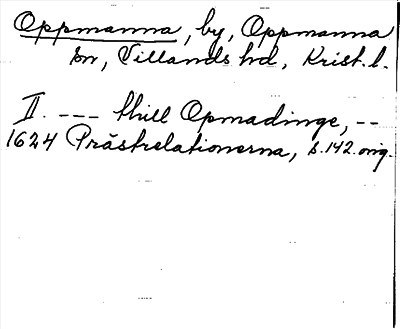 Oppmanna, by, Oppmanna
sn, Villands hd, Krist. l.
II. --- thill Opmadinge, --
1624 Prästrelationerna, s. 142. orig.